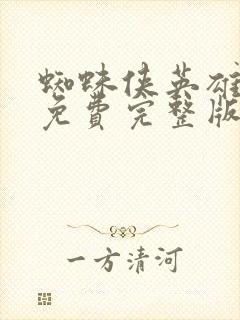 蜘蛛侠英雄
免费完整版
一方清河